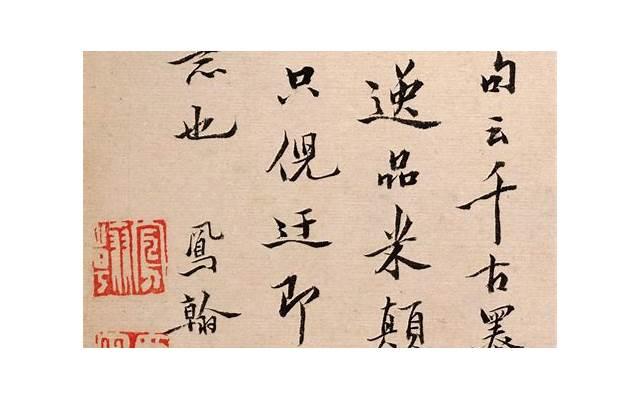 句云千古墨
逸品米顛
只倪迂即
意也
鳳翰